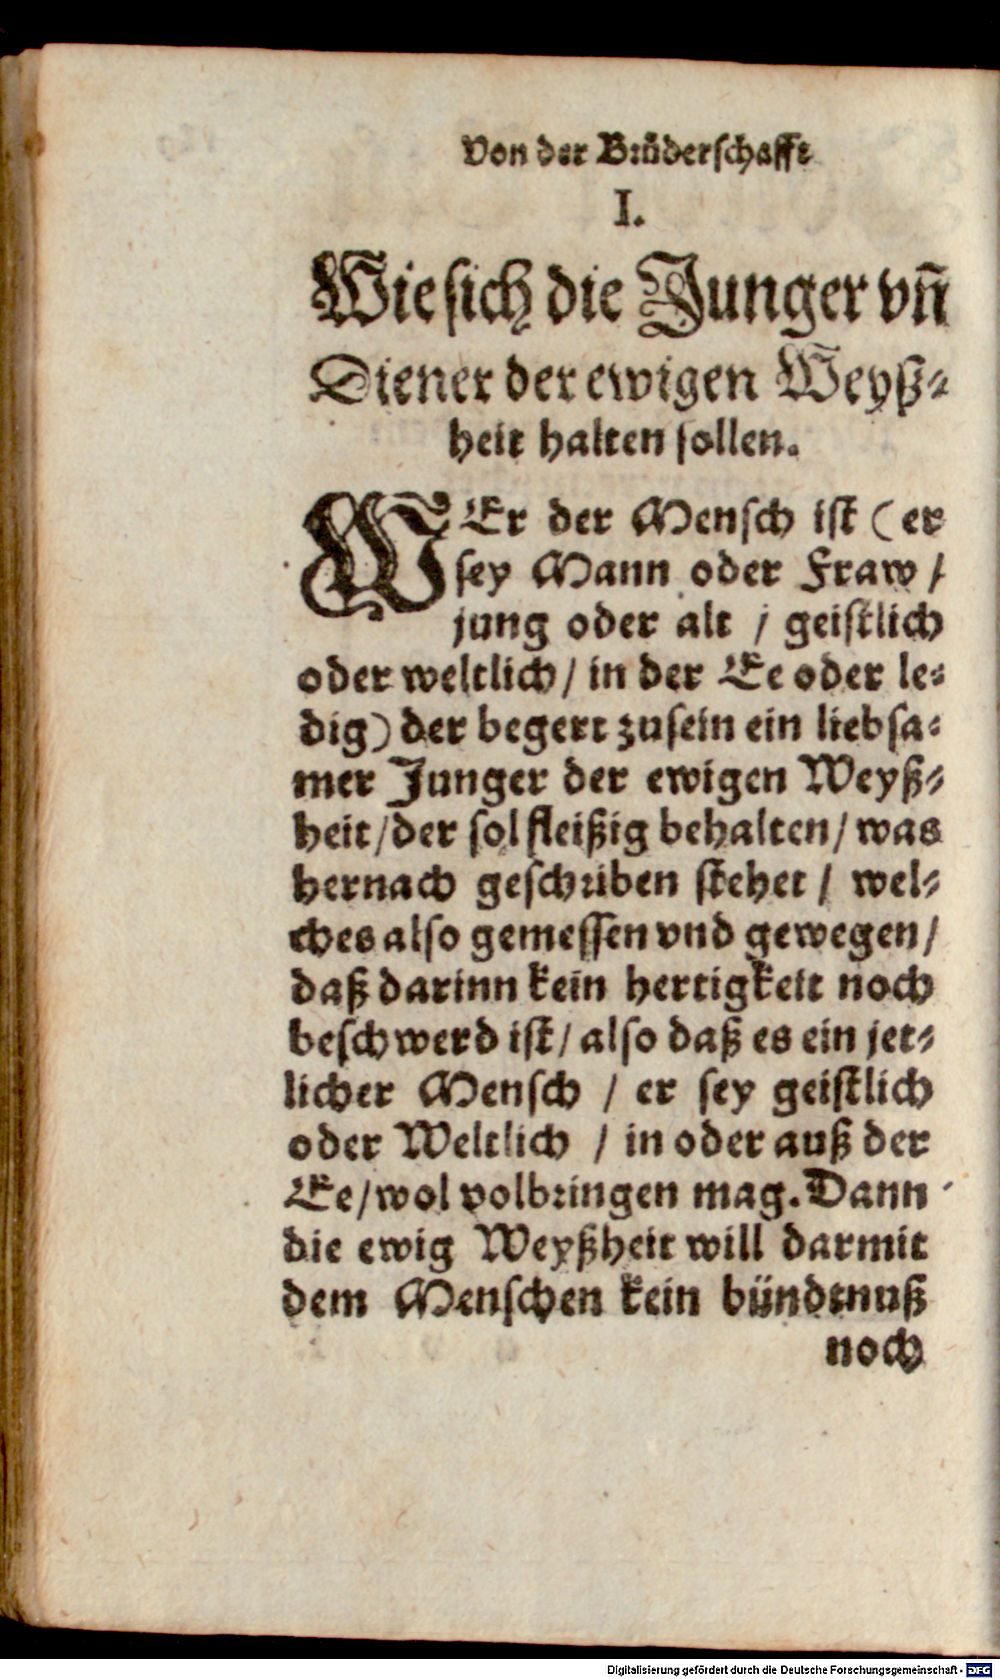 Von der Brůderschafft
I.
Wie sich die Junger vñ
Diener der ewigen Weyß⸗
heit halten sollen.
WEr der Mensch ist (er
sey Mann oder Fraw /
jung oder alt / geistlich
oder weltlich / in der Ee oder le⸗
dig) der begert zusein ein liebsa⸗
mer Junger der ewigen Weyß⸗
heit / der sol fleißig behalten / was
hernach geschriben stehet / wel⸗
ches also gemessen vnd gewegen /
daß darinn kein hertigkeit noch
beschwerd ist / also daß es ein jet⸗
licher Mensch / er sey geistlich
oder Weltlich / in oder auß der
Ee / wol volbringen mag. Dann
die ewig Weyßheit will darmit
dem Menschen kein bündtnuß
noch
Digitalisierung gefördert durch die Deutsche Forschungsgemeinschaft - DFG